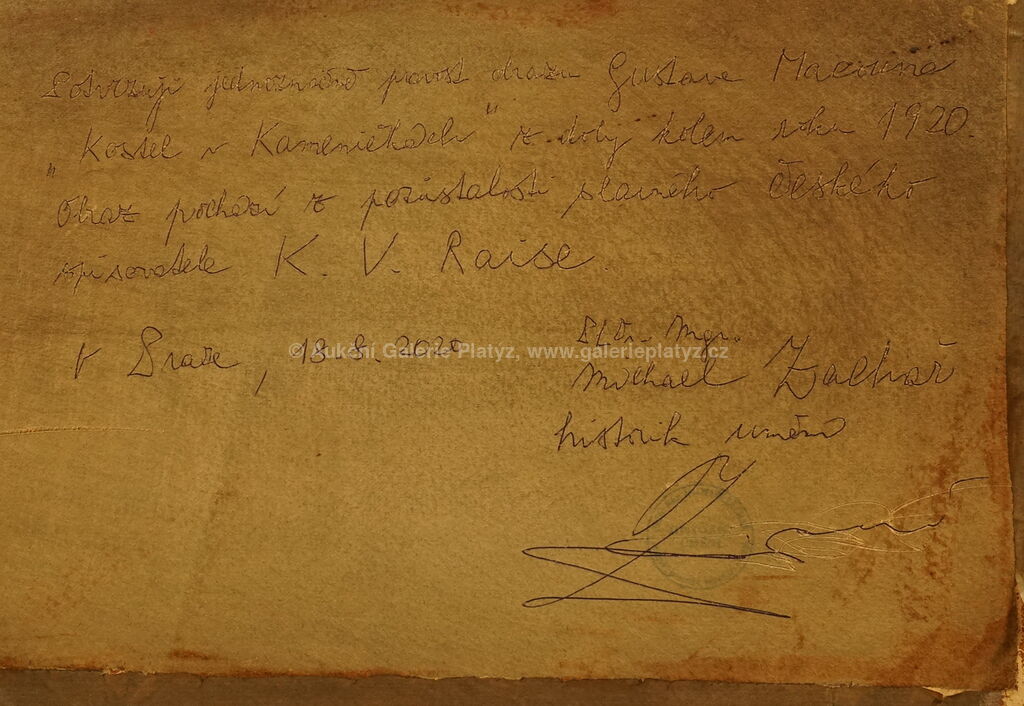 Potvrzuji jednoznačně pravost obrazu Gustava Macouna
"Kostel v Kameničkách" z doby kolem roku 1920.
Obraz pochází z pozůstalosti slavného českého
spisovatele K. V. Raise.
V Praze, 18. 8. 2020
© Aukční Galerie Platýz, www.galerieplatyz.cz
PhDr. Mgr.
Michael Zachař
historik umění